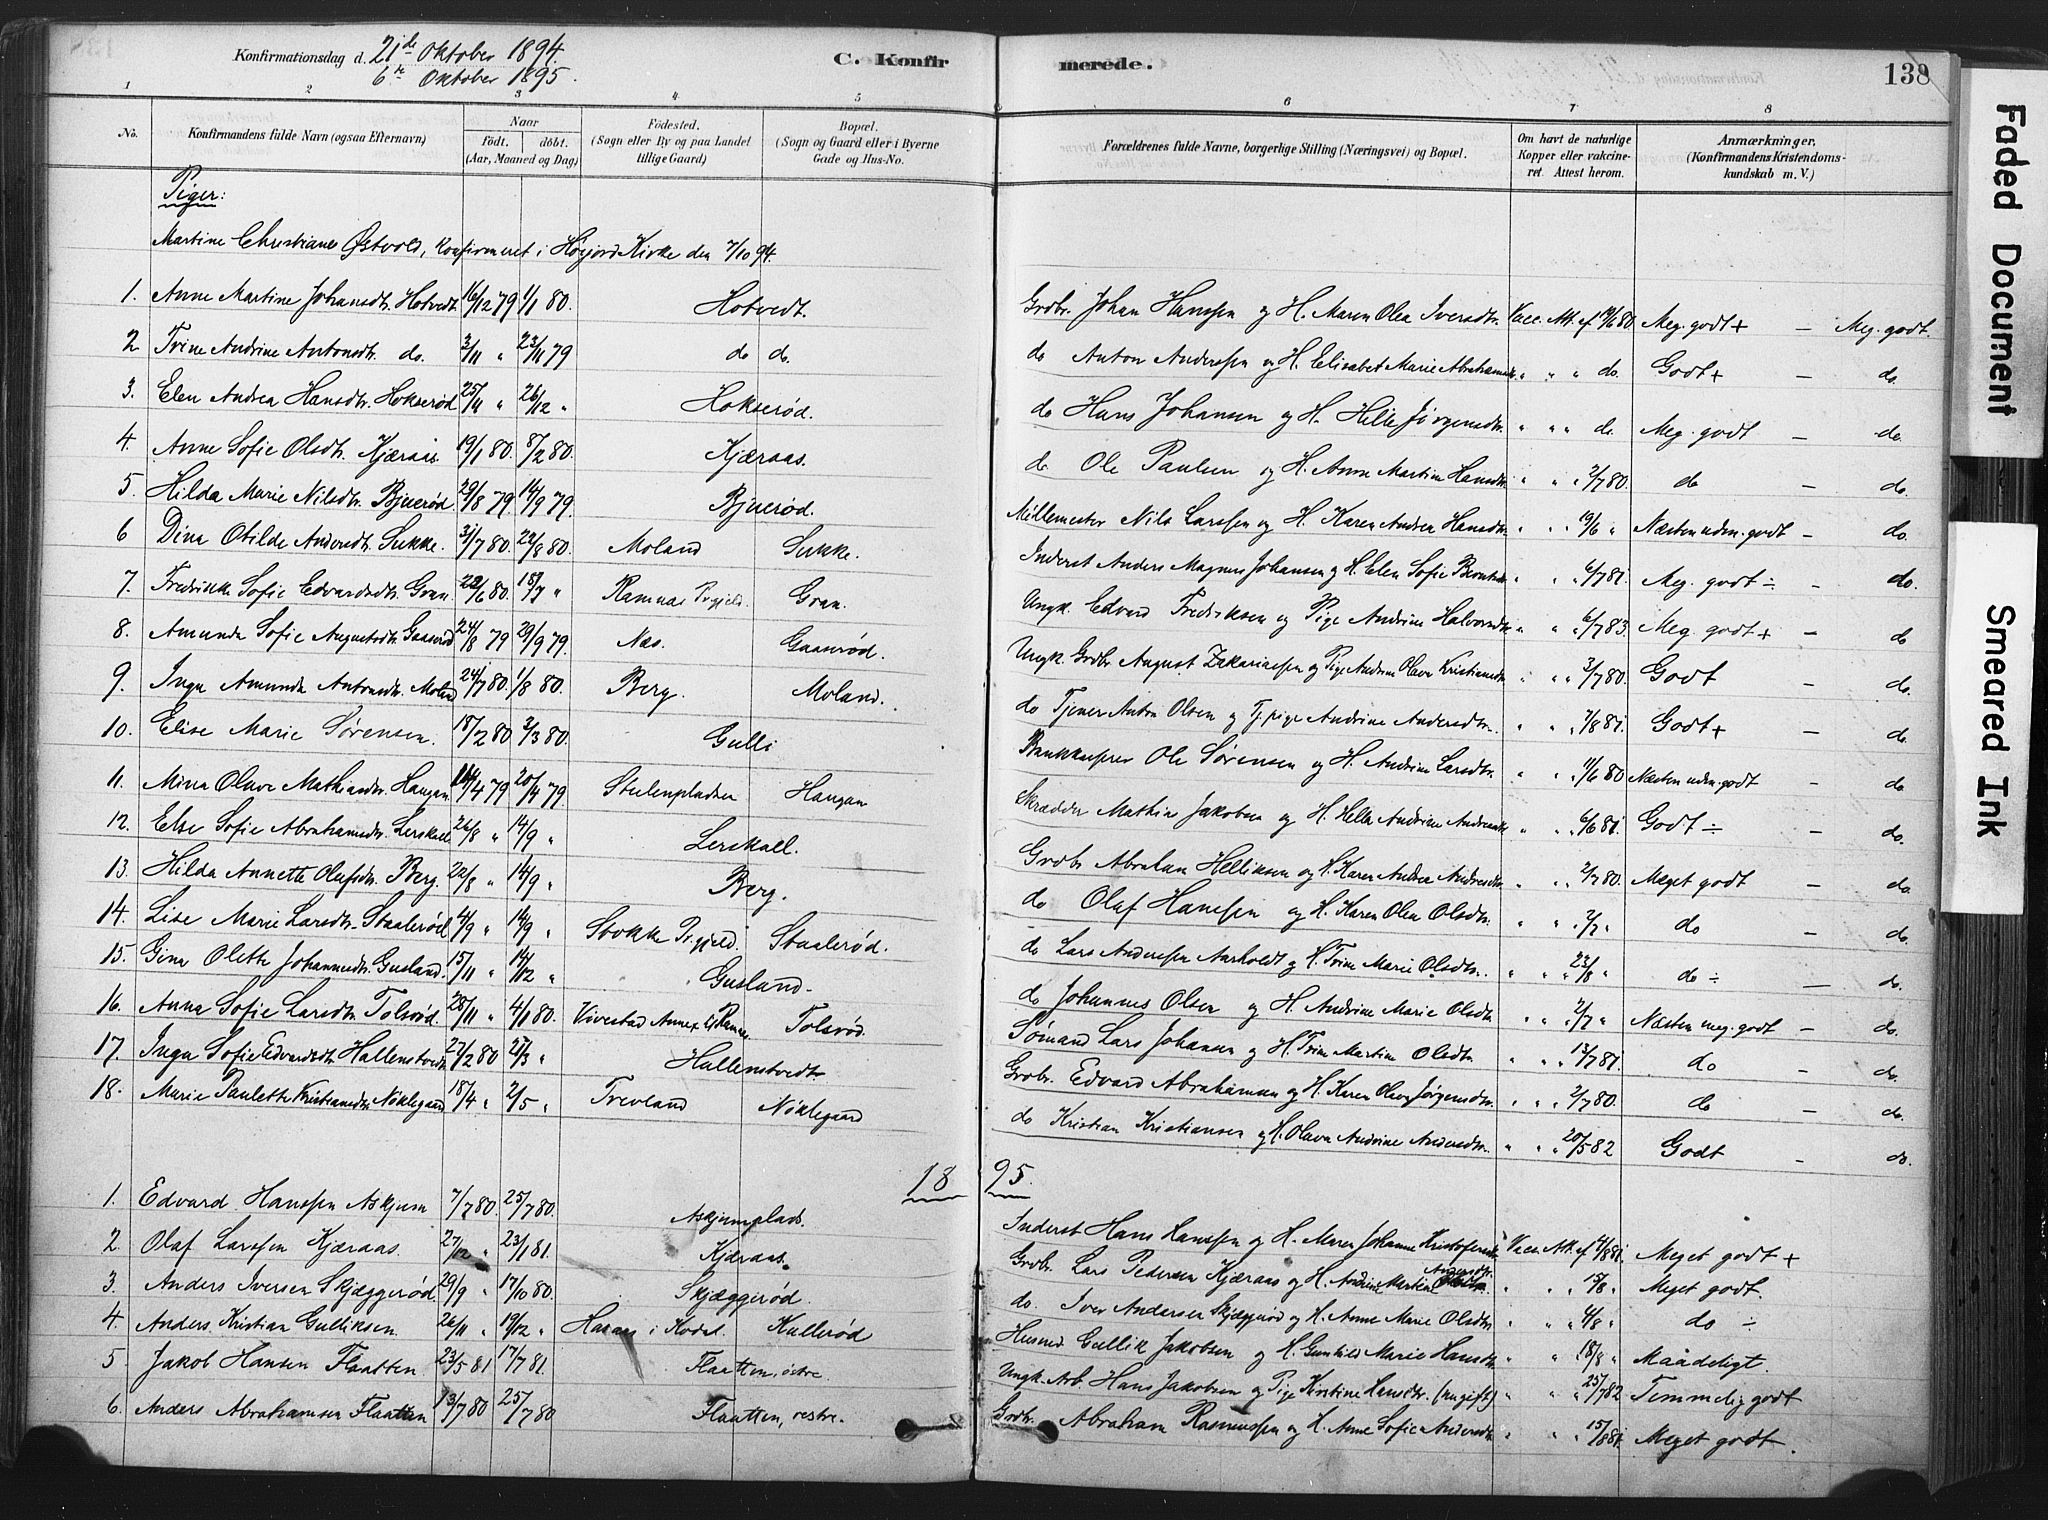 Konfirmationsdag d. 21de Oktober 1894.
6te Oktober 1895.
C. Konfirmerede.
138
Faded Document
Smeared Ink
1 2 3 4 5 6 7 8
No. Konfirmandens fulde Navn (ogsaa Efternavn) Naar født. døbt. (Aar, Maaned og Dag) Fødested. (Sogn eller By og paa Landet tillige Gaard) Bopæl. (Sogn og Gaard eller i Byerne Gade og Hus-No. Forældrenes fulde Navne, borgerlige Stilling (Næringsvei) og Bopæl. Om havt de naturlige Kopper eller vakcineret. Attest herom. Anmærkninger. (Konfirmandens Kristendomskundskab m. V.)
Piger:
Martine Christiane Østvold, konfirmeret i Høijord Kirke den 7/10 94.
1. Anne Martine Johansdtr. Hotvedt 16/12 79 1/1 80. Hotvedt. Grdbr. Johan Hanssen og H. Maren Olea Iversdtr. Vacc. Att. af 19/6 80 Meg. godt + — Meg. godt.
2 Trine Andrine Antonsdtr. do. 3/11 " 23/11 79 do do. do Anton Anderssen og H. Elisabet Marie Abrahamsdtr. " " " do. Godt + — do.
3. Elen Andrea Hansdtr. Hokserød 25/11 " 26/12 " Hokserød. do Hans Johansen og H. Helle Jørgensdtr. " " " do. Meg. godt — do.
4. Anne Sofie Olsdtr. Kjæraas 19/1 80. 8/2 80. Kjæraas. do Ole Paulsen og H. Anne Martine Hansdtr. " " " 2/7 80. do — do.
5. Hilda Marie Nilsdtr. Bjuerød 29/8 79 14/9 79. Bjuerød. Møllemester Nils Larssen og H. Karen Andrea Hansdtr. " " " 19/6 " Næsten udm. godt — do.
6 Dina Otilde Andersdtr. Sukke. 31/7 80. 22/8 80. Moland Sukke. Inderst Anders Magnus Johansen og H. Elen Sofie Berntsdtr. " " " 6/7 81. Meg. godt ÷ — do.
7. Fredrikke Sofie Edvardsdtr. Gran. 22/6 80. 18/7 " Ramnæs Prgjeld. Gran. Ungk. Edvard Fredriksen og Pige Andrine Halvorsdtr. " " " 6/7 83. Meg. godt + — do
8. Amunda Sofie Augustsdtr. Gaasrød 24/8 79 29/9 79. Næs. Gaasrød. Ungk. Grdbr August Zakariassen og Pige Andrine Olava Kristiansdtr. " " " 3/7 80. Godt — do.
9. Inga Amunda Antonsdtr. Moland 24/7 80. 1/8 80. Berg. Moland. do Tjener Anton Olsen og Tj.pige Andrine Andersdtr. " " " 7/8 81. Godt + — do.
10. Elise Marie Sørensen. 18/2 80 3/3 80. Gulli Bankkasserer Ole Sørensen og H. Andrine Larsdtr. " " " 11/6 80 Næsten udm. godt — do
11. Mina Olave Mathiasdtr. Haugan 14/4 79 20/4 79 Stulenpladsen Haugan Skrædder Mathias Jakobsen og H. Helle Andrine Andreasdtr. " " " 6/6 81. Godt ÷ — do.
12. Else Sofie Abrahamsdtr. Lerskall 26/8 " 14/9 " Lerskall. Grdbr Abraham Helliksen og H. Karen Andrea Andersdtr. " " " 2/7 80. Meget godt — do.
13. Hilda Annette Olafsdtr. Berg. 22/8 " 14/9 " Berg. do Olaf Hanssen og H. Karen Olea Olsdtr. " " " 2/7 " do — do.
14. Lise Marie Larsdtr. Staalerød 4/9 " 14/9 " Stokke Prgjeld. Staalerød. do Lars Anderssen Aarholdt og H. Trine Marie Olsdtr. " " " 23/8 " do ÷ — do.
15. Gina Olette Johannesdtr. Gusland. 15/11 " 14/12 " Gusland. do Johannes Olsen og H. Andrine Marie Olsdtr. " " " 2/7 " Næsten meg. godt — do.
16. Anna Sofie Larsdtr. Tolsrød. 28/11 " 4/1 80. Vivestad Annex til Ramnæs Tolsrød. Sømand Lars Johansen og H. Trine Martine Olsdtr. " " " 13/7 81. do — do.
17. Inga Sofie Edvardsdtr. Hallenstvedt 27/2 80 27/3 " Hallenstvedt Grdbr. Edvard Abrahamsen og H. Karen Olava Jørgensdtr. " " " 2/7 80. do — do.
18. Marie Paulette Kristiansdtr. Nøklegaard 18/4 " 2/5 " Trevland Nøklegaard do Kristian Kristiansen og H. Olava Andrine Andersdtr. " " " 20/5 82 Godt — do.
1895.
1. Edvard Hanssen Askjum 7/7 80. 25/7 80. Askjumplads. Inderst Hans Hanssen og H. Maren Johanne Kristofersdtr. Vacc. Att. af 14/8 81. Meget godt +
2 Olaf Larssen Kjæraas. 27/12 " 23/1 81. Kjæraas. Grdbr. Lars Pedersen Kjæraas og H. Andrine Martine Andersdtr. " " 15/8 " Meget godt.
3. Anders Iversen Skjæggerød. 29/9 " 17/10 80. Skjæggerød. do. Iver Andersen Skjæggerød og H. Anne Marie Olsdtr. " " 4/8 " do ÷
4. Anders Kristian Gulliksen. 26/11 " 19/12 " Haraas i Kodal. Kullerød Husmd. Gullik Jakobsen og H. Gunhild Marie Hansdtr. " " 18/8 " Maadeligt
5 Jakob Hansen Flaatten 23/5 81 17/7 81. Flaatten, østre. Ungk. Arb. Hans Jakobsen og Pige Kristine Hansdtr. (nu gift) " " 25/7 82 Temmelig godt
6. Anders Abrahamsen Flaatten 13/7 80 25/7 80 Flaatten, vestre. Grdbr. Abraham Rasmussen og H. Anne Sofie Andersdtr. " " 15/8 81. Meget godt.